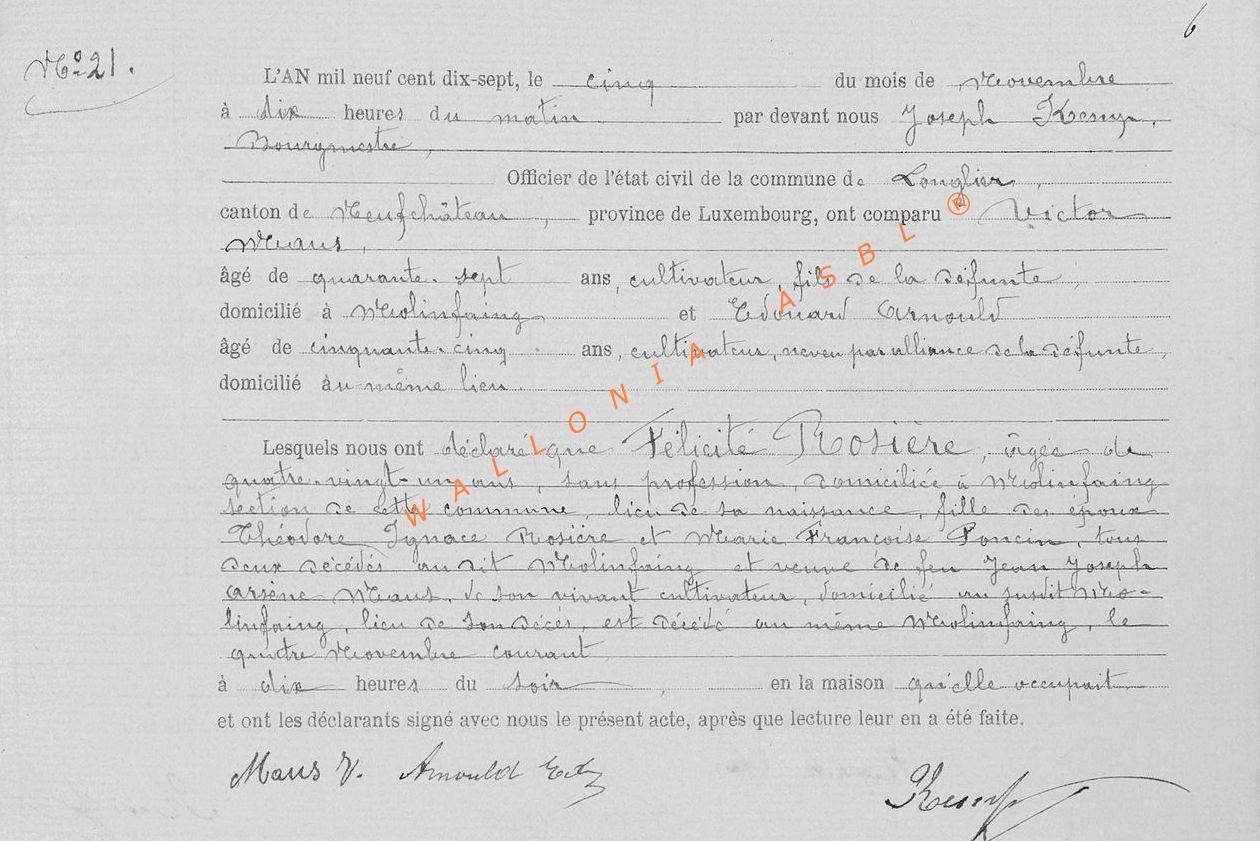 6
No 21.
L'AN mil neuf cent dix-sept, le cinq du mois de Novembre
à dix heures du matin par devant nous Joseph Kemp,
Bourgmestre,
Officier de l'état civil de la commune de Longlier,
canton de Neufchâteau, province de Luxembourg, ont comparu Victor
Maus,
âgé de quarante-sept ans, cultivateur, fils de la défunte,
domicilié à Molinfaing et Edouard Arnould
âgé de cinquante-cinq ans, cultivateur, neveu par alliance de la défunte,
domicilié au même lieu.
Lesquels nous ont déclaré que Félicité Rosière, âgée de
quatre-vingt-un ans, sans profession, domiciliée à Molinfaing
section de cette commune, lieu de sa naissance, fille des époux
Théodore Ignace Rosière et Marie Françoise Poncin, tous
deux décédés au dit Molinfaing et veuve de feu Jean Joseph
Arsène Maus, de son vivant cultivateur, domicilié au susdit Mo-
linfaing, lieu de son décès, est décédé au même Molinfaing, le
quatre Novembre courant
à dix heures du soir, en la maison qu'elle occupait
et ont les déclarants signé avec nous le présent acte, après que lecture leur en a été faite.
Maus V. Arnould Ed Kemp
WALLONIA ASBL ®